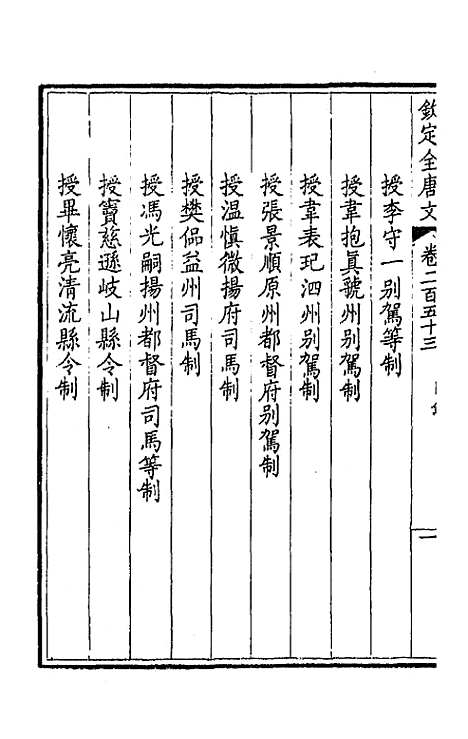 欽定全唐文
卷二百五十三
一
授李守一別駕等制
授韋抱眞虢州別駕制
授韋表玘泗州別駕制
授張景順原州都督府別駕制
授溫愼微揚府司馬制
授樊偘益州司馬制
授馮光嗣揚州都督府司馬等制
授竇慈遜岐山縣令制
授畢懷亮清流縣令制